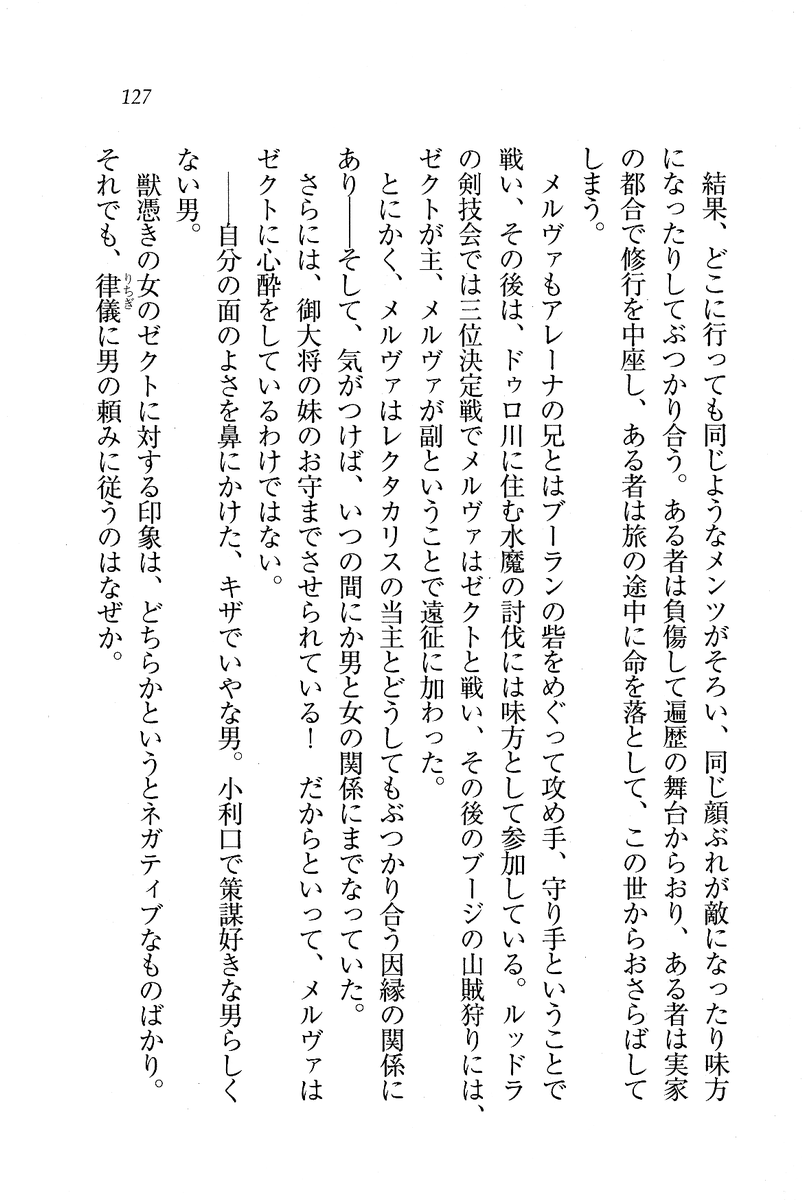 127
結果、どこに行っても同じようなメンツがそろい、同じ顔ぶれが敵になったり味方
になったりしてぶつかり合う。ある者は負傷して遍歴の舞台からおり、ある者は実家
の都合で修行を中座し、ある者は旅の途中に命を落として、この世からおさらばして
しまう。
メルヴァもアレーナの兄とはブーランの砦をめぐって攻め手、守り手ということで
戦い、その後は、ドゥロ川に住む水魔の討伐には味方として参加している。ルッドラ
の剣技会では三位決定戦でメルヴァはゼクトと戦い、その後のブージの山賊狩りには、
ゼクトが主、メルヴァが副ということで遠征に加わった。
とにかく、メルヴァはレクタカリスの当主とどうしてもぶつかり合う因縁の関係に
あり――そして、気がつけば、いつの間にか男と女の関係にまでなっていた。
さらには、御大将の妹のお守までさせられている！　だからといって、メルヴァは
ゼクトに心酔をしているわけではない。
――自分の面のよさを鼻にかけた、キザでいやな男。小利口で策謀好きな男らしく
ない男。
獣憑きの女のゼクトに対する印象は、どちらかというとネガティブなものばかり。
それでも、律儀に男の頼みに従うのはなぜか。
りちぎ